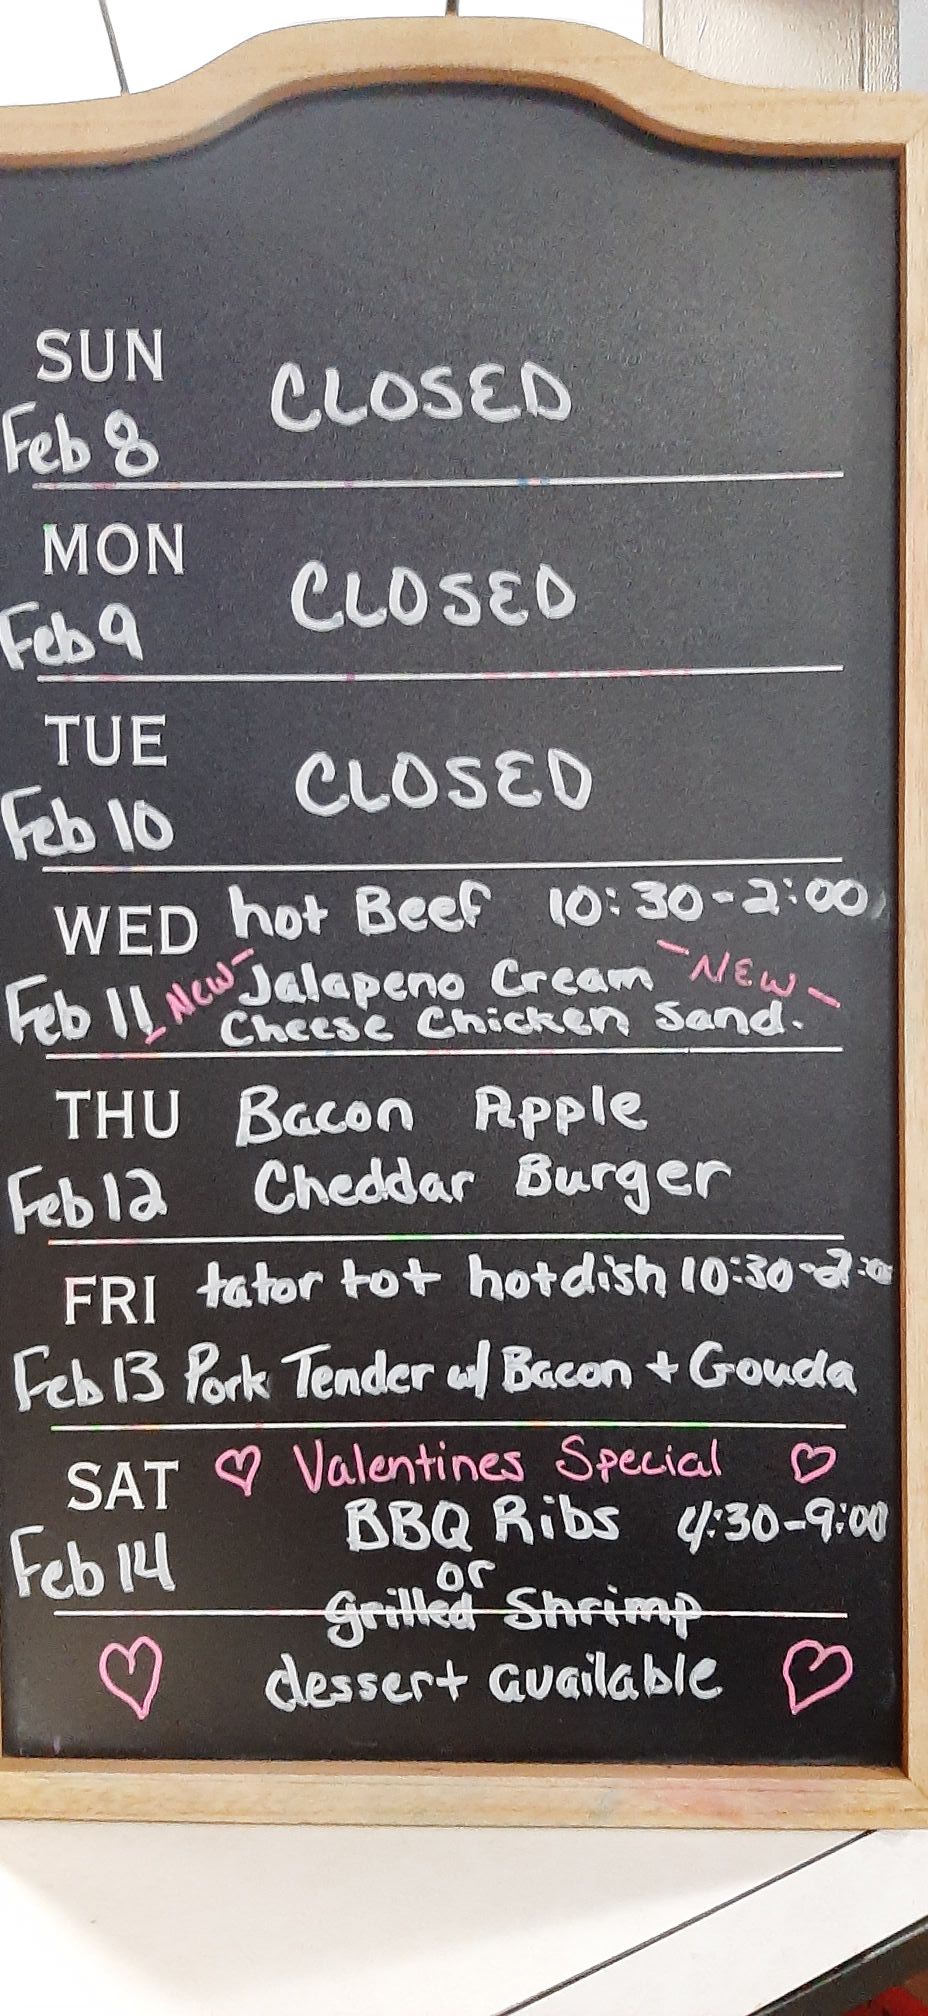 SUN
CLOSED
Feb 8
MON
CLOSED
Feb 9
TUE
CLOSED
Feb 10
WED hot Beef 10:30-2:00
Feb 11 -New- Jalapeno Cream -NEW-
Cheese Chicken Sand.
THU Bacon Apple
Feb 12 Cheddar Burger
FRI tator tot hotdish 10:30-2:00
Feb 13 Pork Tender w/ Bacon + Gouda
SAT ♡ Valentines Special ♡
BBQ Ribs 4:30-9:00
Feb 14 or
grilled Shrimp
♡ dessert available ♡